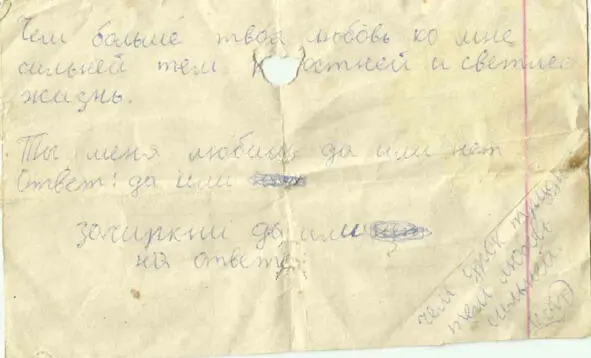 Чем больше твоя любовь ко мне
сильней тем остней и светлее
жизнь.
Ты меня любишь да или нет
Ответ: да или
зачиркни да или
на ответе
чем
тем
сильней.